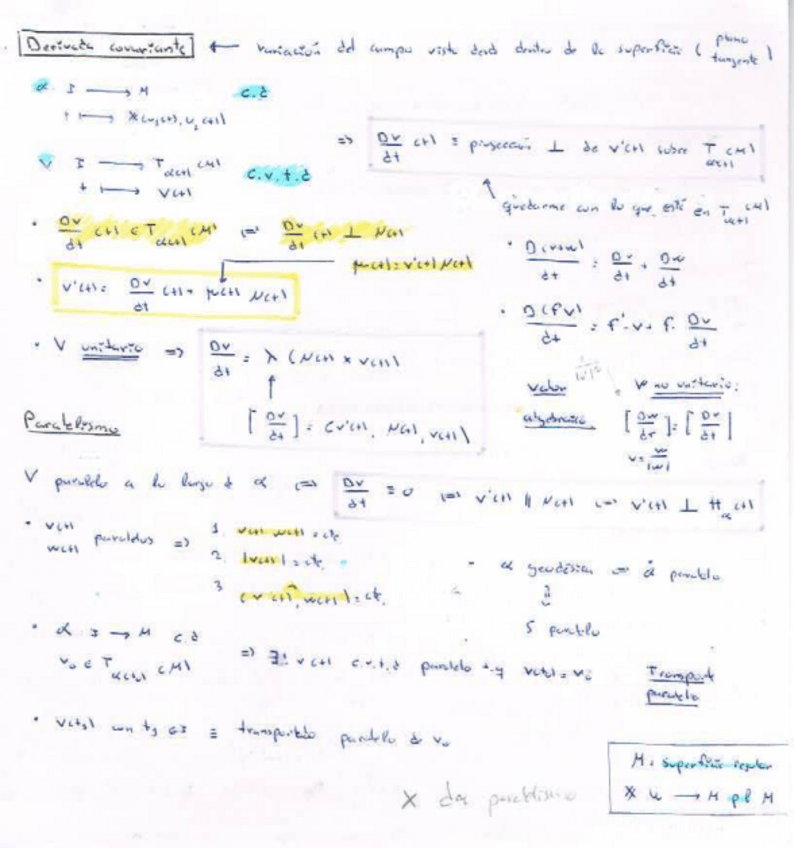 Derivada covariante ← variación del campo vista desd dentro de la superficie ( plano tangente )
α: I → M c.d
t ↦ X(u₁(t), u₂(t))
V I → T_α(t) (M) c.v.t.d
t ↦ V(t)
=> Dv/dt (t) ≡ proyección ⊥ de v'(t) sobre T_α(t) (M)
↑ quedarme con lo que está en T_α(t) (M)
· Dv/dt (t) ∈ T_α(t) (M) <=> Dv/dt (t) ⊥ N(t)
μ(t) = v'(t) N(t)
· v'(t) = Dv/dt (t) + μ(t) N(t)
· D(v+w)/dt = Dv/dt + Dw/dt
· D(fv)/dt = f'·v + f· Dv/dt
· V unitario => Dv/dt = λ (N(t) x v(t))
↑
[Dv/dt] = (v'(t), N(t), v(t))
valor algebraico
W no unitario:
[Dw/dt] = [Dv/dt]
v = w/|w|
Paralelismo
V paralelo a lo largo d α <=> Dv/dt ≡ 0 <=> v'(t) ∥ N(t) <=> v'(t) ⊥ Π_α(t)
· v(t) w(t) paralelos => 1. v(t) w(t) = cte.
2. |v(t)| = cte.
3. (v(t), w(t)) = cte.
· α geodésica <=> α' paralelo
⇕
S paralelo
· α: I → M c.d
v₀ ∈ T_α(t₀) (M)
=> ∃! v(t) c.v.t.d paralelo t.q v(t₀) = v₀ Transport paralelo
· V(t₁) con t₁ ∈ I ≡ transportado paralelo de v₀
M: superficie regular
X U → M pl M